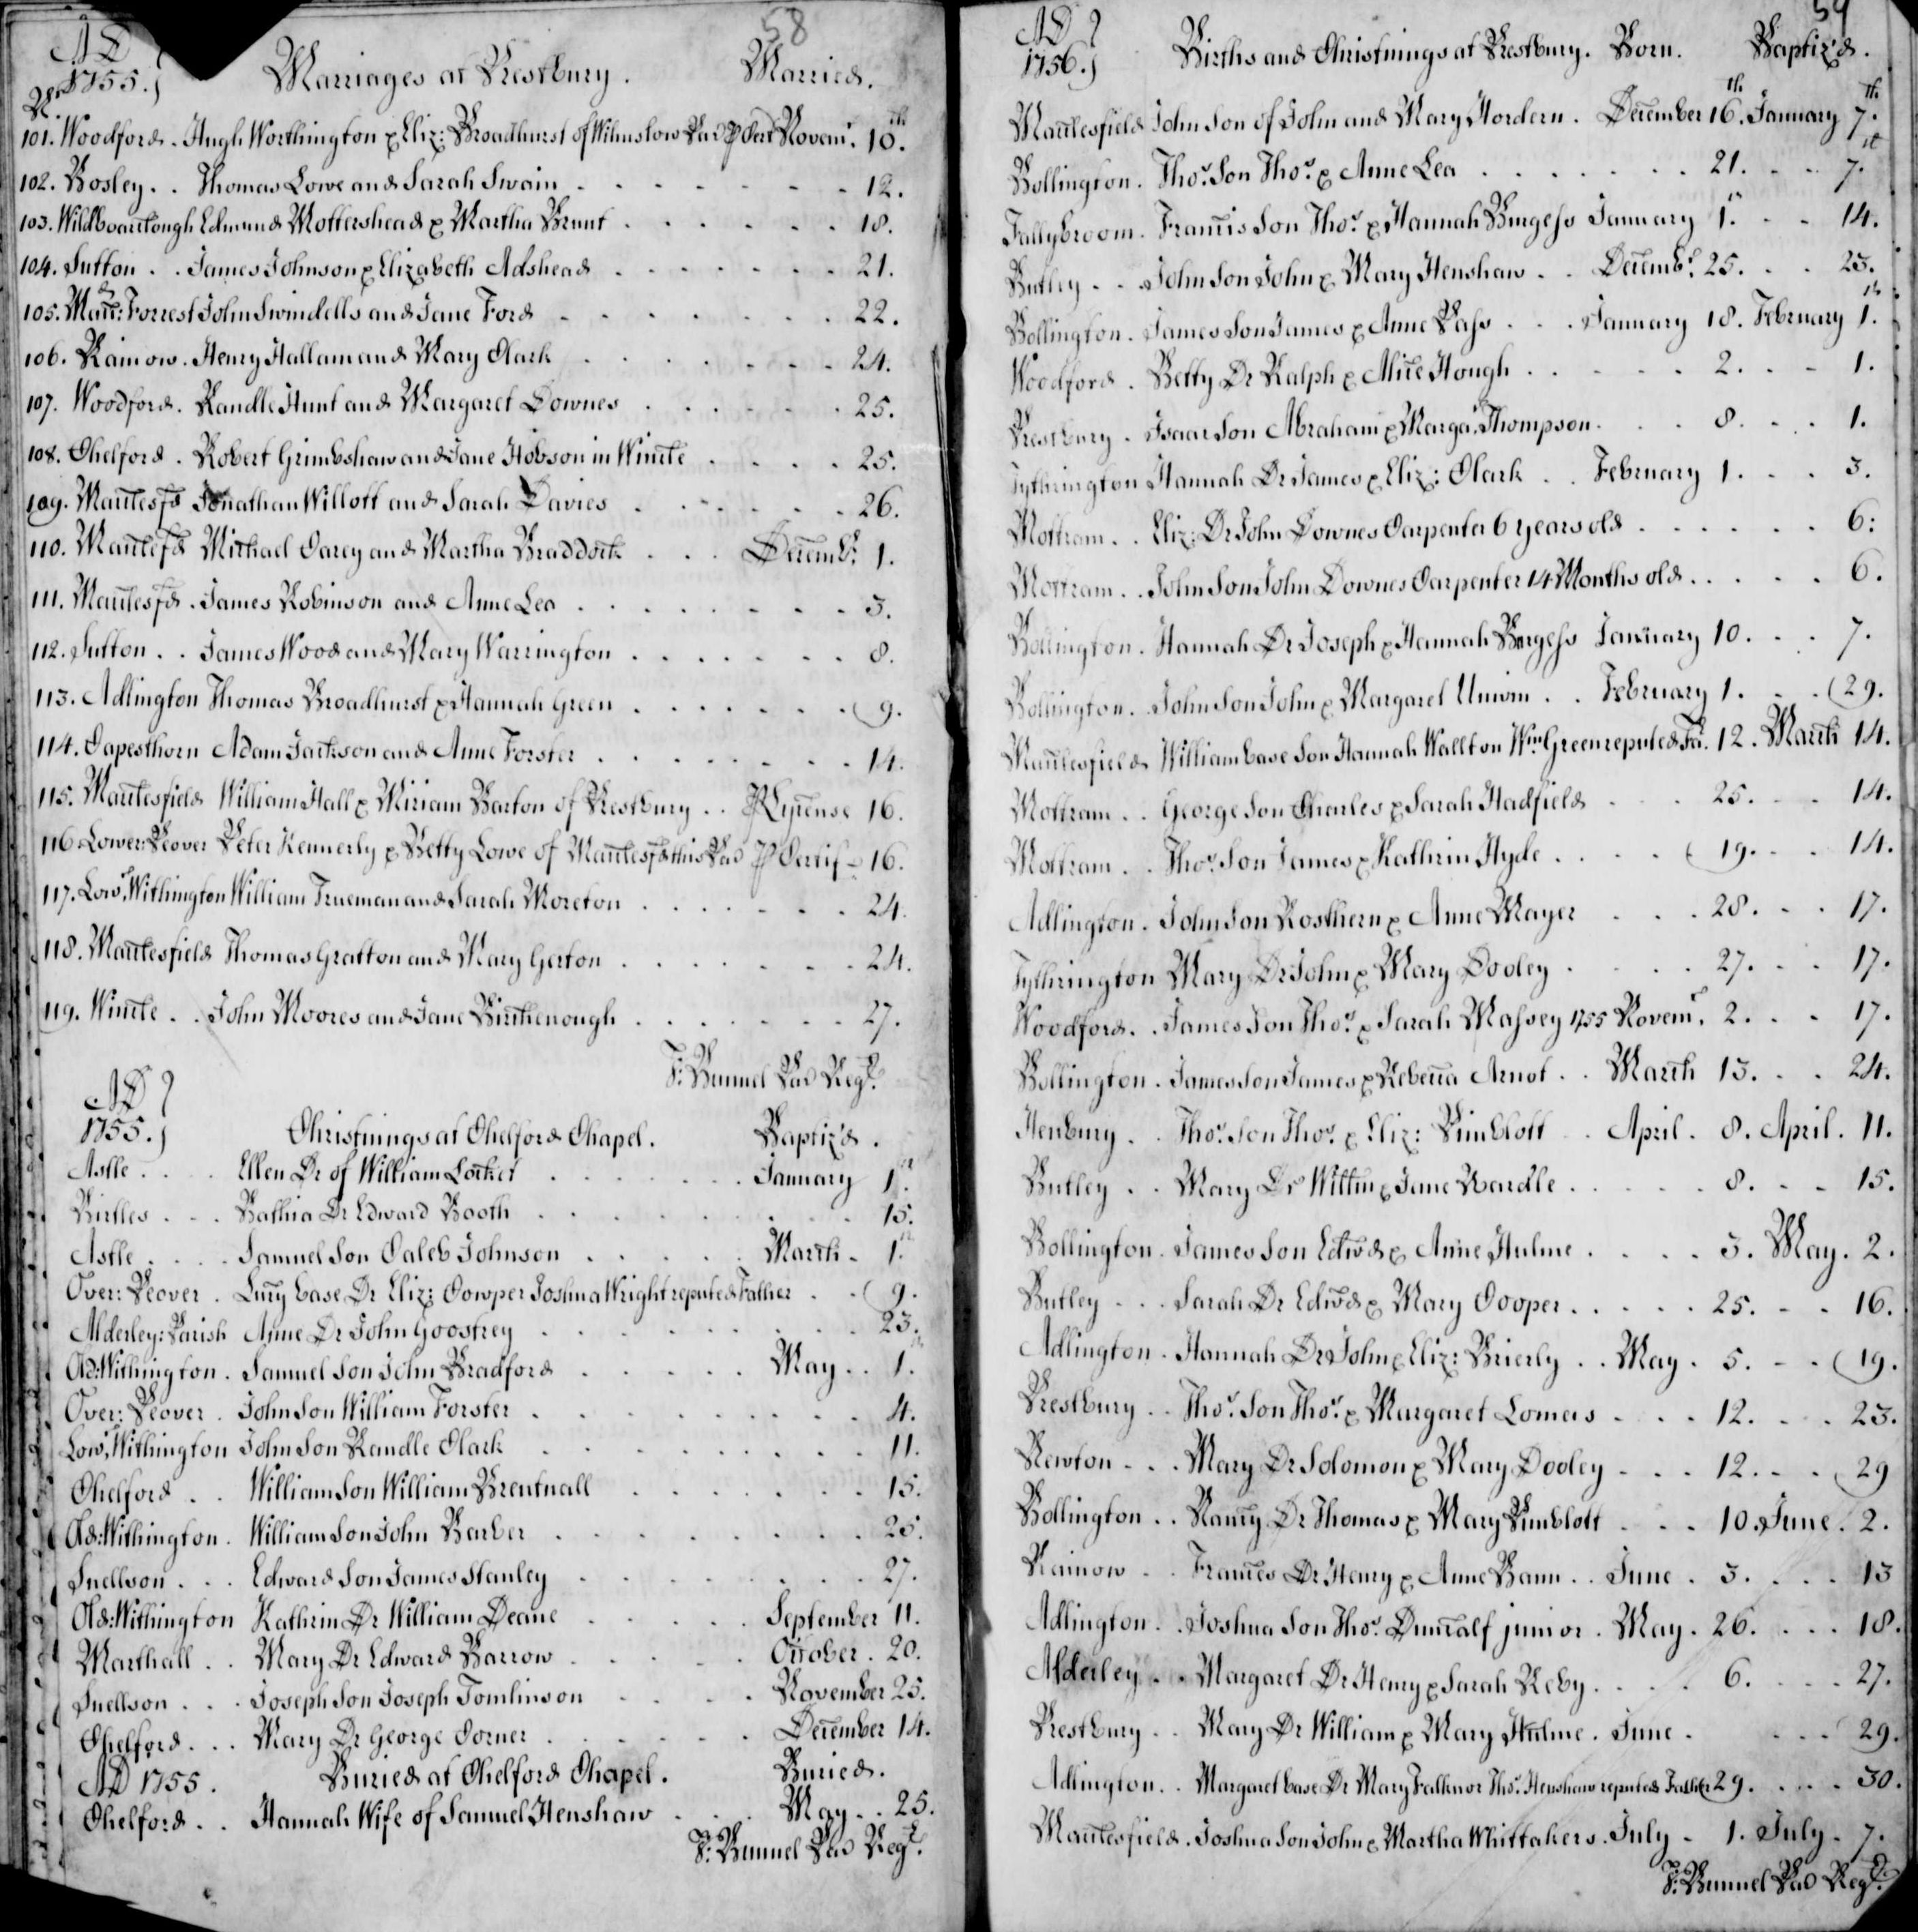 58
AD 1755. Marriages at Prestbury. Married.
No
101. Woodford. Hugh Worthington & Eliz: Broadhurst of Wilmslow Par P Cert Novem.r 10.th
102. Bosley. . Thomas Lowe and Sarah Swain 12.
103. Wildboarclough Edmund Mottershead & Martha Brunt 18.
104. Sutton . . James Johnson & Elizabeth Adshead 21.
105. Macc: Forrest John Swindells and Jane Ford 22.
106. Rainow. Henry Hallam and Mary Clark 24.
107. Woodford. Randle Hunt and Margaret Downes 25.
108. Chelford. Robert Grimbshaw and Jane Hobson in Wincle 25.
109. Macclesfd Jonathan Willott and Sarah Davies 26.
110. Macclesfd Michael Carey and Martha Braddock Decemb.r 1.
111. Macclesfd. James Robinson and Anne Lea 3.
112. Sutton . . James Wood and Mary Warrington 8.
113. Adlington Thomas Broadhurst & Hannah Green 9.
114. Capesthorn Adam Jackson and Anne Forster 14.
115. Macclesfield William Hall & Miriam Barton of Prestbury . . P Lycense 16.
116. Lower: Peover Peter Kennerly & Betty Lowe of Macclesfd this Par P Certif - 16.
117. Low.r Withington William Trueman and Sarah Moreton 24.
118. Macclesfield Thomas Gratton and Mary Gerton 24.
119. Wincle . . John Moores and Jane Birchenough 27.
P: Bunnel Par Reg.r
AD 1755. Christnings at Chelford Chapel. Baptiz'd.
Astle Ellen Dr of William Locket January 1.st
Birtles Bathia Dr Edward Booth 15.
Astle Samuel Son Caleb Johnson March 1.st
Over: Peover. Lucy base Dr Eliz: Cowper Joshua Wright reputed Father 9.
Alderley: Parish Anne Dr John Goostrey 23.
Old: Withington. Samuel Son John Bradford May 1.st
Over: Peover. John Son William Forster 4.
Low.r Withington John Son Randle Clark 11.
Chelford . . William Son William Brentnall 15.
Old: Withington. William Son John Barber 25.
Snellson . . . Edward Son James Stanley 27.
Old: Withington Kathrin Dr William Deane September 11.
Marthall . . Mary Dr Edward Barrow October. 20.
Snellson . . . Joseph Son Joseph Tomlinson November 25.
Chelford . . . Mary Dr George Corner December 14.
AD 1755. Buried at Chelford Chapel. Buried.
Chelford . . Hannah Wife of Samuel Henshaw May . . 25.
P: Bunnel Par Reg.r
59
AD 1756. Births and Christnings at Prestbury. Born. Baptiz'd.
Macclesfield John Son of John and Mary Hordern. December 16.th January 7.th
Bollington. Tho.s Son Tho.s & Anne Lea 21. 7.
Fallybroom. Francis Son Tho.s & Hannah Burgess January 1.st 14.
Butley . . John Son John & Mary Henshaw . . Decemb.r 25. 23.
Bollington. James Son James & Anne Pass . . . January 18. February 1.st
Woodford. Betty Dr Ralph & Alice Hough 2. 1.
Prestbury. Isaac Son Abraham & Marga.t Thompson 8. 1.
Tythrington Hannah Dr James & Eliz: Clark . . February 1. 3.
Mottram . . Eliz: Dr John Downes Carpenter 6 years old 6:
Mottram . . John Son John Downes Carpenter 14 Months old 6.
Bollington. Hannah Dr Joseph & Hannah Burgess January 10. 7.
Bollington. John Son John & Margaret Unwin . . February 1. 29.
Macclesfield William base Son Hannah Wallton Wm Green reputed Fa. 12. March 14.
Mottram . . George Son Charles & Sarah Hadfield 25. 14.
Mottram . . Tho.s Son James & Kathrin Hyde 19. 14.
Adlington. John Son Rosthern & Anne Mayer 28. 17.
Tythrington Mary Dr John & Mary Dooley 27. 17.
Woodford. . James Son Tho.s & Sarah Massey 1755 Novem.r 2. 17.
Bollington. James Son James & Rebecca Arnot . . March 13. 24.
Henbury . . Tho.s Son Tho.s & Eliz: Pimblott . . April. 8. April. 11.
Butley . . Mary Dr Willm & Jane Wardle 8. 15.
Bollington. James Son Edwd & Anne Hulme 3. May. 2.
Butley . . . Sarah Dr Edwd & Mary Cooper 25. 16.
Adlington. Hannah Dr John & Eliz: Brierly . . May. 5. 19.
Prestbury . . Tho.s Son Tho.s & Margaret Lomas 12. 23.
Newton . . . Mary Dr Solomon & Mary Dooley 12. 29
Bollington . . Nancy Dr Thomas & Mary Pimblott 10. June. 2.
Rainow . . Frances Dr Henry & Anne Bann . . June. 3. 13
Adlington. . Joshua Son Tho.s Duncalf junior. May. 26. 18.
Alderley . . Margaret Dr Henry & Sarah Reby 6. 27.
Prestbury . . Mary Dr William & Mary Hulme. June. 29.
Adlington. . Margaret base Dr Mary Falkner Tho.s Henshaw reputed Father 29. 30.
Macclesfield. Joshua Son John & Martha Whittakers. July - 1. July - 7.
P: Bunnel Par Reg.r